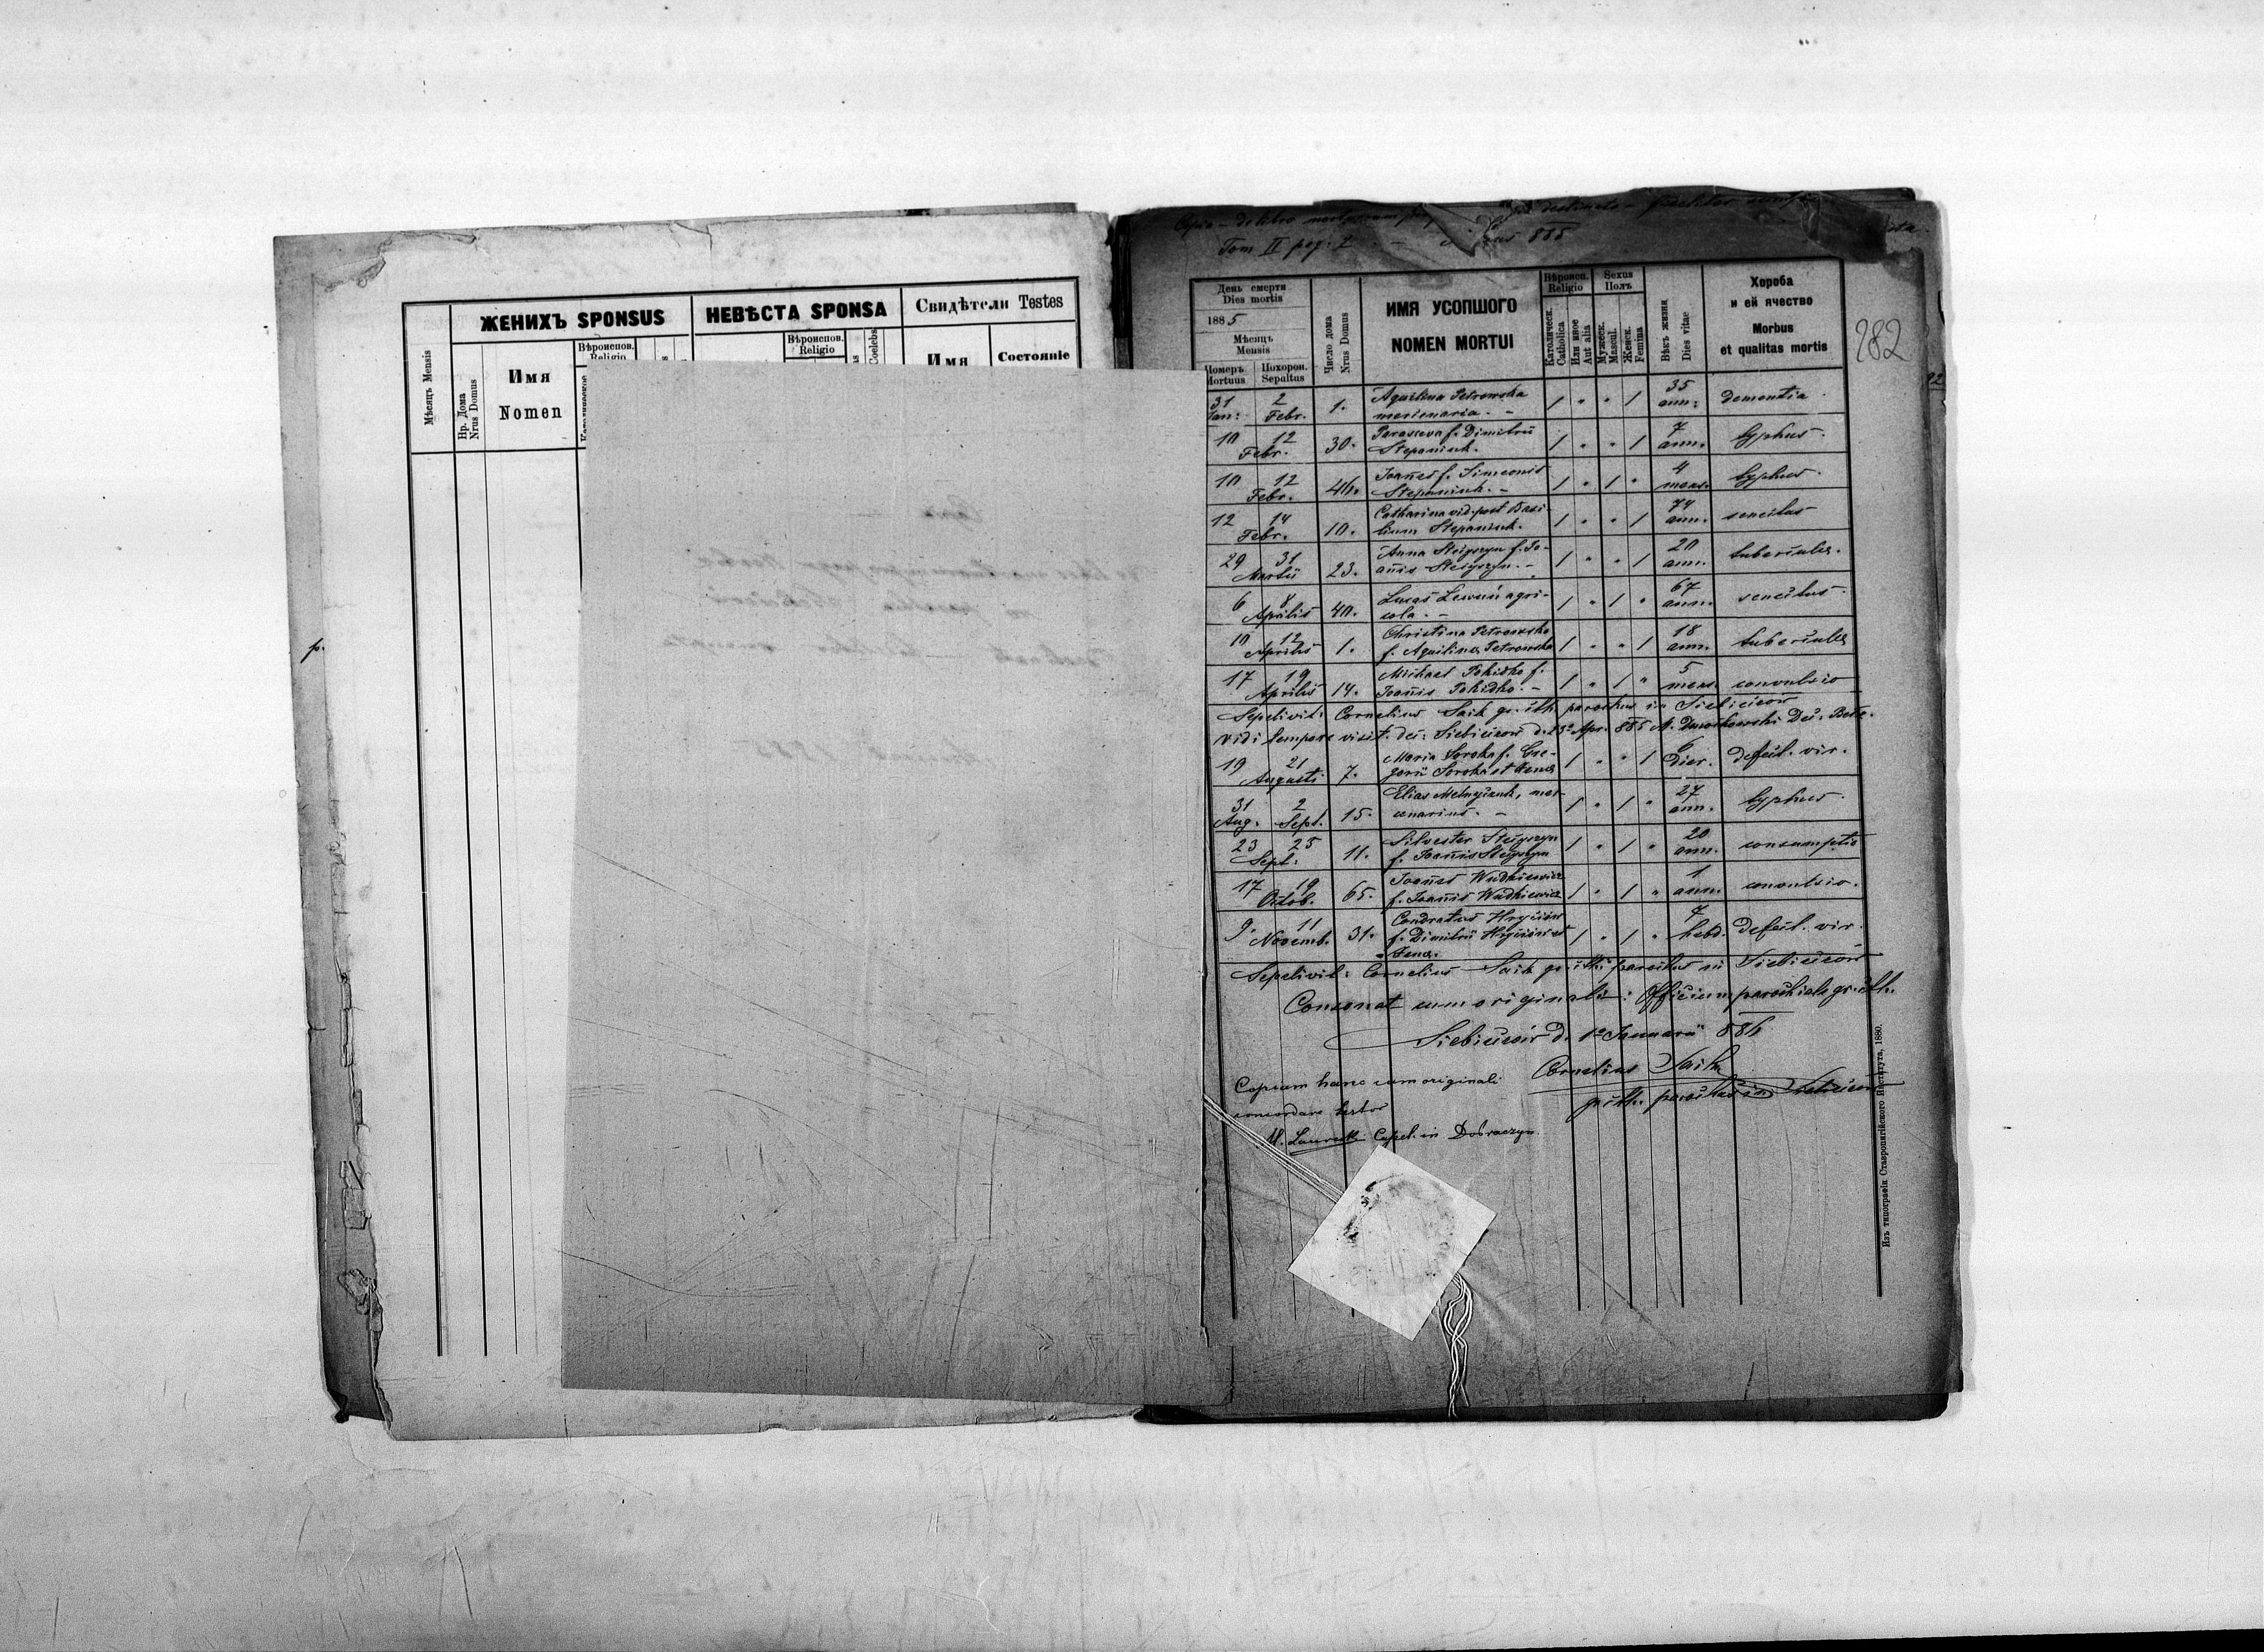 ЖЕНИХЪ SPONSUS
НЕВѢСТА SPONSA
Свидѣтели Testes
Мѣсяцъ Mensis
Нр. Дома
Nrus Domus
Имя
Nomen
Вѣроиспов.
Religio
Вѣроиспов.
Religio
Coelebs
Имя
Состояніе
p.
Copia - de libro mortuorum
Tom II pag: 2 885
282
День смерти
Dies mortis
1885
Мѣсяцъ
Mensis
Номеръ
Mortuus
Похорон.
Sepultus
Число дома
Nrus Domus
ИМЯ УСОПШОГО
NOMEN MORTUI
Вѣроисп.
Religio
Католическ.
Catholica
Или иное
Aut alia
Sexus
Полъ
Мужеск.
Mascul.
Женск.
Femina
Вѣкъ жизни
Dies vitae
Хороба
и ей ячество
Morbus
et qualitas mortis
31 Jan: 2 Febr. 1. Aquilina Petrowska mercenaria. - 1 " " 1 35 ann: dementia.
10 12 Febr. 30. Parasceva f. Dimitrii Stepaniuk. 1 " " 1 7 ann. typhus.
10 12 Febr. 46. Joañes f. Simeonis Stepaniuk. - 1 " 1 " 4 mens. typhus.
12 14 Febr. 10. Catharina vid. post Basilium Stepaniuk. 1 " " 1 74 ann. senectus
29 31 Martii 23. Anna Steciyszyn f. Joañis Steciyszyn. - 1 " " 1 20 ann. tubercules.
6 8 Aprilis 40. Lucas Lewcun agricola. - 1 " 1 " 67 ann. senectus.
10 12 Aprilis 1. Christina Petrowska f. Aquilina Petrowska 1 " " 1 18 ann. tubercules
17 19 Aprilis 14. Michael Pohidko f. Joañis Pohidko. - 1 " 1 " 5 mens. convulsio
Sepelivit: Cornelius Saik gr. cth. parochus in Siebieczow
Vidi tempore visit. dec: Siebieczow d. 23º Apr. 885 Dec. Belz.
19 21 Augusti 7. Maria Soroka f. Gregorii Soroka et 1 " " 1 6 Dier. defect. vir.
31 Aug. 2 Sept. 15. Elias Melnyczuk, mercenarius. - 1 " 1 " 27 ann. typhus.
23 25 Sept: 11. Silvester Steciyszyn f. Joañis Steciyszyn 1 " 1 " 20 ann. consumptio
17 19 Octob. 65. Joañes Wudkiewicz f. Joañis Wudkiewicz 1 " 1 " 1 ann. convulsio.
9. 11 Novemb. 31. Condratus Hryciow f. Dimitrii Hryciow et 1 " 1 " 7 hebd. defect. vir.
Sepelivit: Cornelius Saik gr. cth. parochus in Siebieczow
Consonat cum originali: Officium parochiale gr. cth.
Siebieczow d. 1º Januarii 886
Cornelius Saik
gr. cth. parochus in Siebieczow
Copiam hanc cum originali
concordare testor
Capel. in Dobraczyn.
Изъ типографіи Ставропигійского Института, 1880.